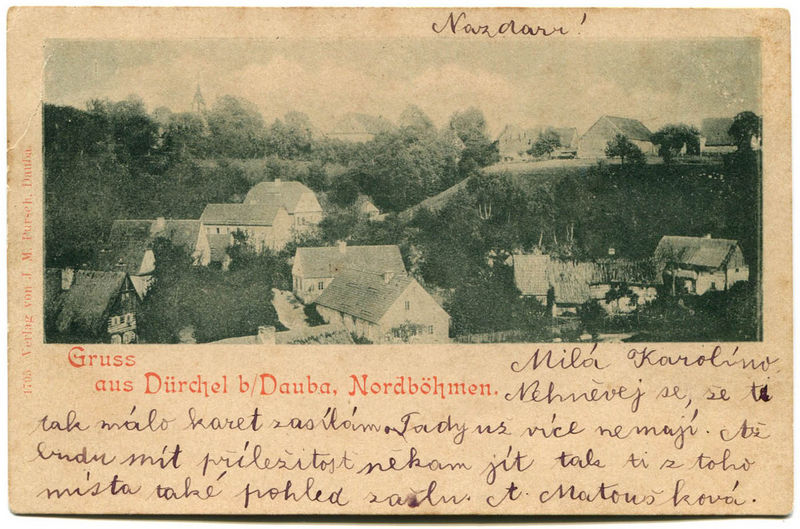 Nazdarr!
1795 Verlag von J. M. Pursch, Dauba.
Gruss
aus Dürchel b/Dauba, Nordböhmen.
Milá Karolíno.
Nehněvej se, že ti
tak málo karet zasílám. Tady už více nemají. Až
budu mít příležitost někam jít tak ti z toho
místa také pohled zašlu. A. Matoušková.